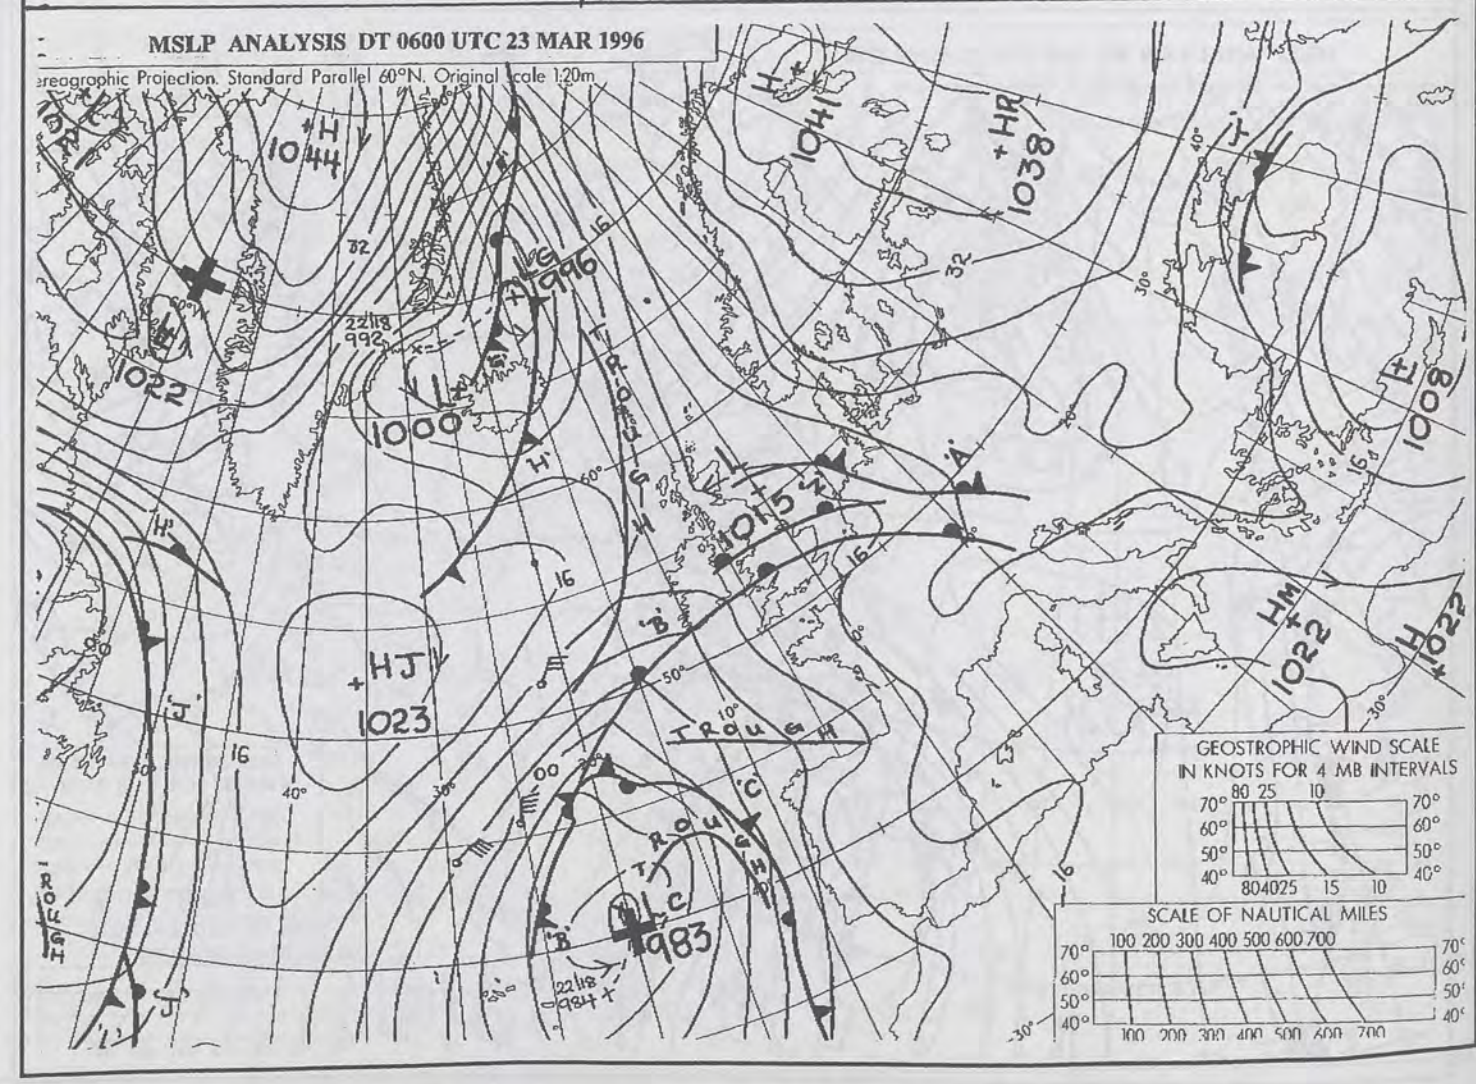 MSLP ANALYSIS DT 0600 UTC 23 MAR 1996
ereographic Projection. Standard Parallel 60°N. Original Scale 1:20m
H
1044
H
1041
HR
1038
'J'
40°
32
32
16
LG
996
30°
22/18
992
60°N
H
1022
L
1000
TROUGH
'H'
60°
'A'
H
1008
16
L
1015
'H'
16
16
'B'
0°
HM
1022
H
1022
HJ
1023
50°
10°
TROUGH
'J'
16
30°
00
20°
40°
30°
'C'
TROUGH
40°
LC
983
'B'
22/18
984
TROUGH
'J'
'L'
16
30°
GEOSTROPHIC WIND SCALE
IN KNOTS FOR 4 MB INTERVALS
80 25 10
70° 70°
60° 60°
50° 50°
40° 40°
80 40 25 15 10
SCALE OF NAUTICAL MILES
100 200 300 400 500 600 700
70° 70°
60° 60°
50° 50°
40° 40°
100 200 300 400 500 600 700
30°